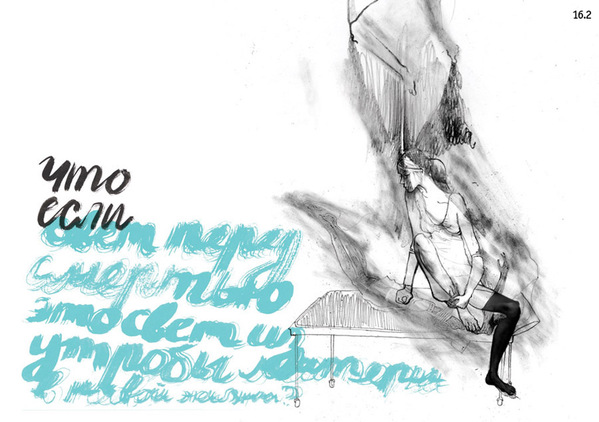 16.2
что
если
свет перед
смертью
это свет из
утробы матери
в новой жизни?